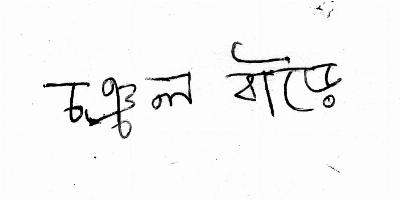 চঞ্চল বাড়ৈ